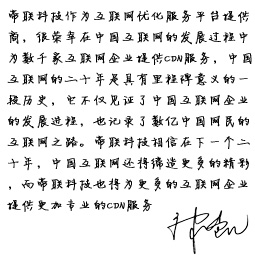 帝联科技作为互联网优化服务平台提供
商，很荣幸在中国互联网的发展过程中
为数千家互联网企业提供CDN服务，中国
互联网的二十年是具有里程碑意义的一
段历史，它不仅见证了中国互联网企业
的发展过程，也记录了数亿中国网民的
互联网之路。帝联科技相信在下一个二
十年，中国互联网还将缔造更多的精彩
，而帝联科技也将为更多的互联网企业
提供更加专业的CDN服务